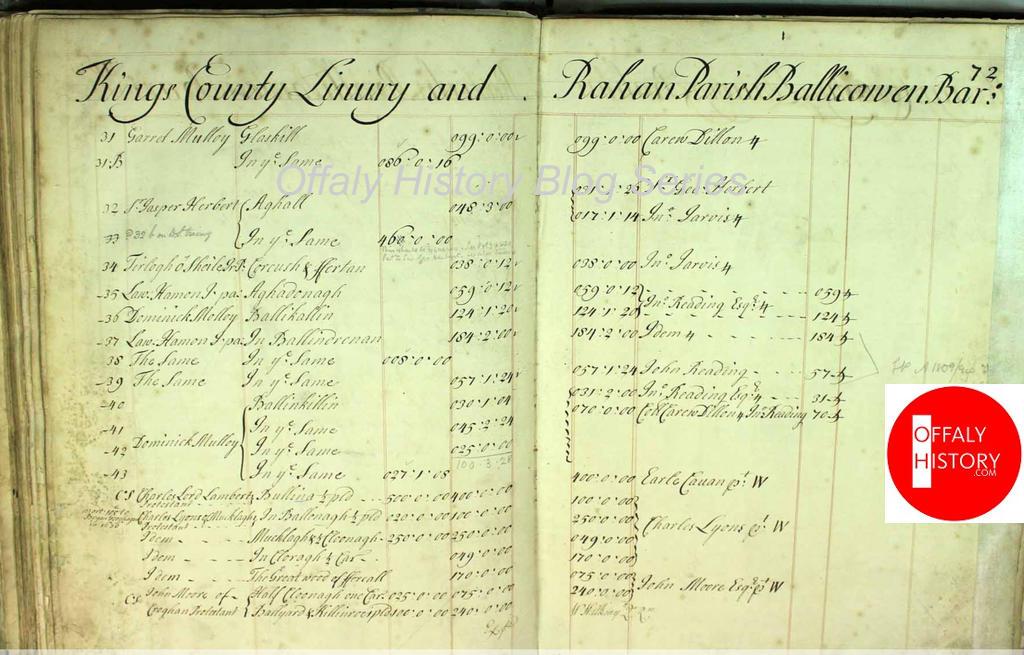 72
Kings County Linury and Rahan Parish Ballicowen Bar:
Offaly History Blog Series
31 Garret Mulloy Glaskill 099:0:00 099:0:00 Carew Dillon
31:B In yᵉ Same 086:0:16
031:1:26 Sʳ Geo: Herbert
32 Sʳ Jasper Herbert Aghall 048:3:00 017:1:14 Jnº Jarvis
33 In yᵉ Same 460:0:00
34 Terlogh o Sheile Corcush & ffertan 038:0:12 038:0:00 Jnº Jarvis
35 Law: Hamon J: pa: Aghadonagh 059:0:12 059:0:12 059
36 Dominick Molloy Ballikallin 124:1:20 124:1:20 Jnº Reading Esqʳ 124
37 Law: Hamon J: pa: In Ballindrenan 184:2:00 184:2:00 Idem 184
38 The Same In yᵉ Same 008:0:00
39 The Same In yᵉ Same 057:1:24 057:1:24 John Reading 57
40 Ballinkillin 030:1:04 031:2:00 Jnº Reading Esqʳ 31
070:0:00 Coll Carew Dillon Jnº Reading 70
41 In yᵉ Same 045:2:24
Dominick Mulloy
42 In yᵉ Same 025:0:00
100:3:28
43 In yᵉ Same 027:1:08
CS Charles Lord Lambert Protestant Bullina ½ pld 500:0:00 400:0:00 400:0:00 Earle Cavan W
Charles Lyons of Mucklagh Protestant In Ballenagh ½ pld 020:0:00 100:0:00 100:0:00
Idem Mucklagh & ½ Cloonagh 250:0:00 250:0:00 250:0:00 Charles Lyons W
Idem In Cloragh ½ Car 049:0:00 049:0:00
Idem The Great wood of ffercall 170:0:00 170:0:00
CS John Moore of Half Cloonagh one Car 025:0:00 075:0:00 075:0:00 John Moore Esqʳ W
Croghan Protestant Ballyard & Killinroe pld 100:0:00 240:0:00 240:0:00
OFFALY
HISTORY
.COM